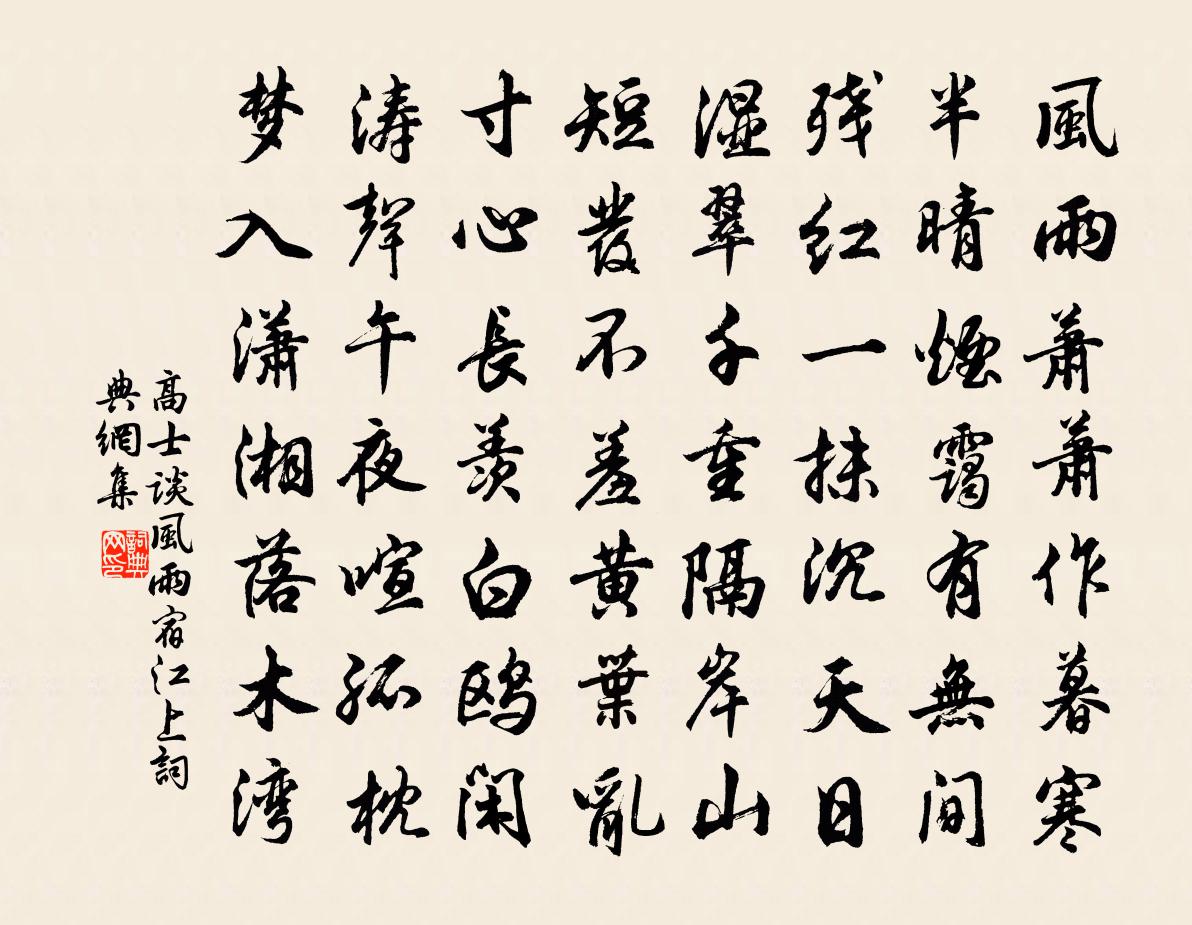 風雨蕭蕭作暮寒
半晴煙靄有無間
残紅一抹沉天日
湿翠千重隔岸山
短發不羞黃葉亂
寸心長羨白鸥閑
涛聲午夜喧孤枕
梦入瀟湘落木湾
高士談風雨宿江上詞
典網集
詞典网印